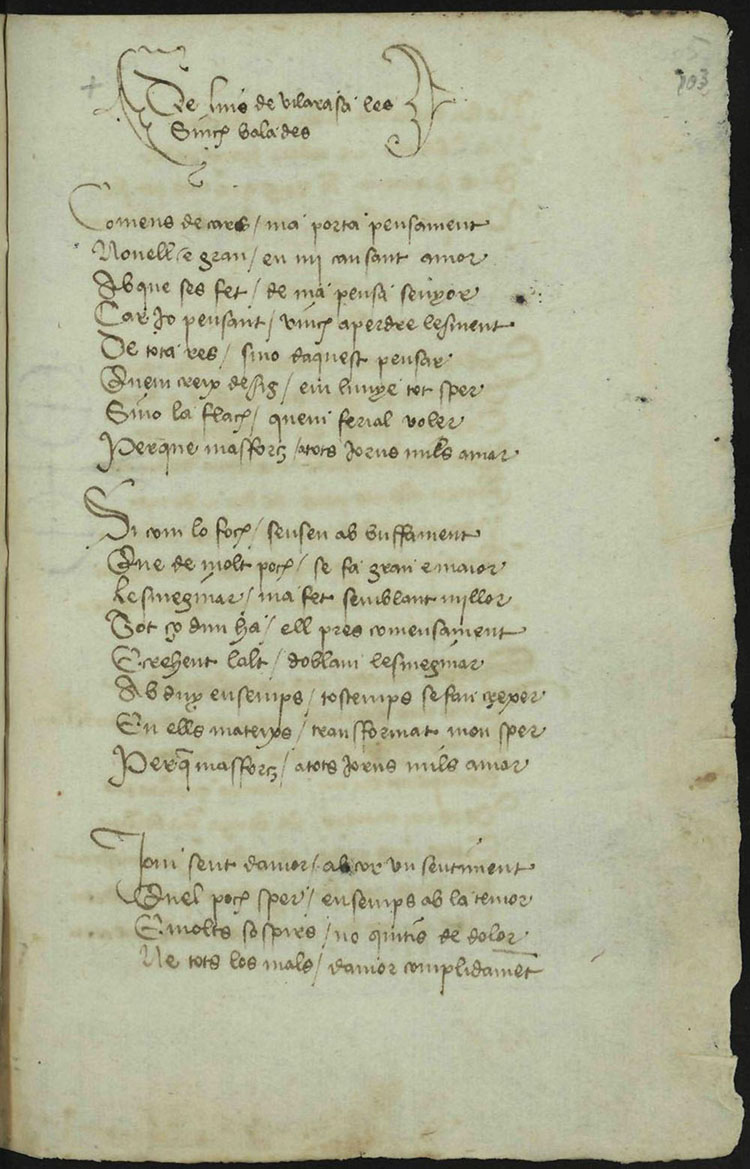 103
De luis de vilarasa les
Sinch balades
Comens de cars / ma porta pensament
Novell e gran / en mi causant amor
Ab que ses fet / de ma pensa senyor
Car Jo pensant / vinch aperdre lesment
De tota res / sino daquest pensar
Quem creix desig / em lunye tot sper
Sino la flach / quem ferial voler
Perque masforç / atots Jorns mils amar
Si com lo foch / sensen ab buffament
Que de molt poch / se fa gran e maior
Lesmeginar / ma fet semblant millor
Tot ço dun ha / ell pres comensament
E crehent lalt / doblam lesmeginar
Ab duy ensemps / tostemps se fan crexer
En ells mateyxs / transformat mon sper
Perq̃ masforç / atots Jorns mils amar
Jom sent damor / ab cor un sentiment
Quel poch sper / ensemps ab la temor
E molts sospirs / no quitis de dolor
Ne tots los mals / damor complidamēt